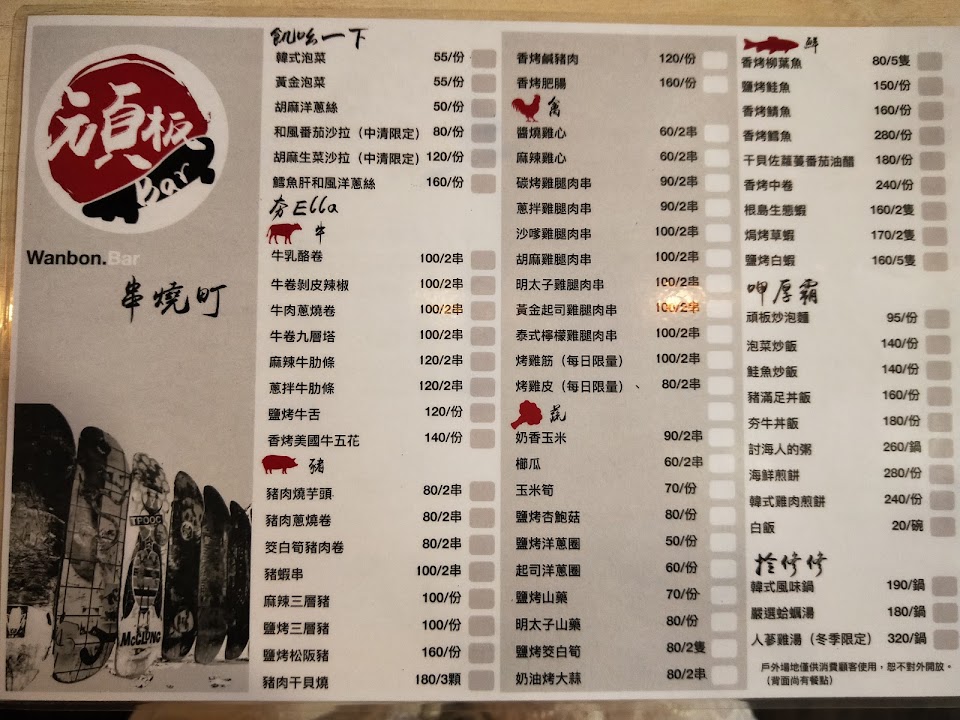 頑板
Bar
Wanbon.Bar
串燒町
TFOOC
McCLUNG
飢吆一下
韓式泡菜 55/份
黃金泡菜 55/份
胡麻洋蔥絲 50/份
和風番茄沙拉（中清限定） 80/份
胡麻生菜沙拉（中清限定） 120/份
鱈魚肝和風洋蔥絲 160/份
夯Ella
牛
牛乳酪卷 100/2串
牛卷剝皮辣椒 100/2串
牛肉蔥燒卷 100/2串
牛卷九層塔 100/2串
麻辣牛肋條 120/2串
蔥拌牛肋條 120/2串
鹽烤牛舌 120/份
香烤美國牛五花 140/份
豬
豬肉燒芋頭 80/2串
豬肉蔥燒卷 80/2串
筊白筍豬肉卷 80/2串
豬蝦串 100/2串
麻辣三層豬 100/份
鹽烤三層豬 100/份
鹽烤松阪豬 160/份
豬肉干貝燒 180/3顆
香烤鹹豬肉 120/份
香烤肥腸 160/份
禽
醬燒雞心 60/2串
麻辣雞心 60/2串
碳烤雞腿肉串 90/2串
蔥拌雞腿肉串 90/2串
沙嗲雞腿肉串 100/2串
胡麻雞腿肉串 100/2串
明太子雞腿肉串 100/2串
黃金起司雞腿肉串 100/2串
泰式檸檬雞腿肉串 100/2串
烤雞筋（每日限量） 100/2串
烤雞皮（每日限量）、 80/2串
蔬
奶香玉米 90/2串
櫛瓜 60/2串
玉米筍 70/份
鹽烤杏鮑菇 80/份
鹽烤洋蔥圈 50/份
起司洋蔥圈 60/份
鹽烤山藥 70/份
明太子山藥 80/份
鹽烤筊白筍 80/2隻
奶油烤大蒜 80/2串
鮮
香烤柳葉魚 80/5隻
鹽烤鮭魚 150/份
香烤鯖魚 160/份
香烤鱈魚 280/份
干貝佐蘿蔓番茄油醋 180/份
香烤中卷 240/份
根島生態蝦 160/2隻
焗烤草蝦 170/2隻
鹽烤白蝦 160/5隻
呷厚霸
頑板炒泡麵 95/份
泡菜炒飯 140/份
鮭魚炒飯 140/份
豬滿足丼飯 160/份
夯牛丼飯 180/份
討海人的粥 260/鍋
海鮮煎餅 280/份
韓式雞肉煎餅 240/份
白飯 20/碗
拴修修
韓式風味鍋 190/鍋
嚴選蛤蠣湯 180/鍋
人蔘雞湯（冬季限定） 320/鍋
戶外場地僅供消費顧客使用，恕不對外開放。
（背面尚有餐點）